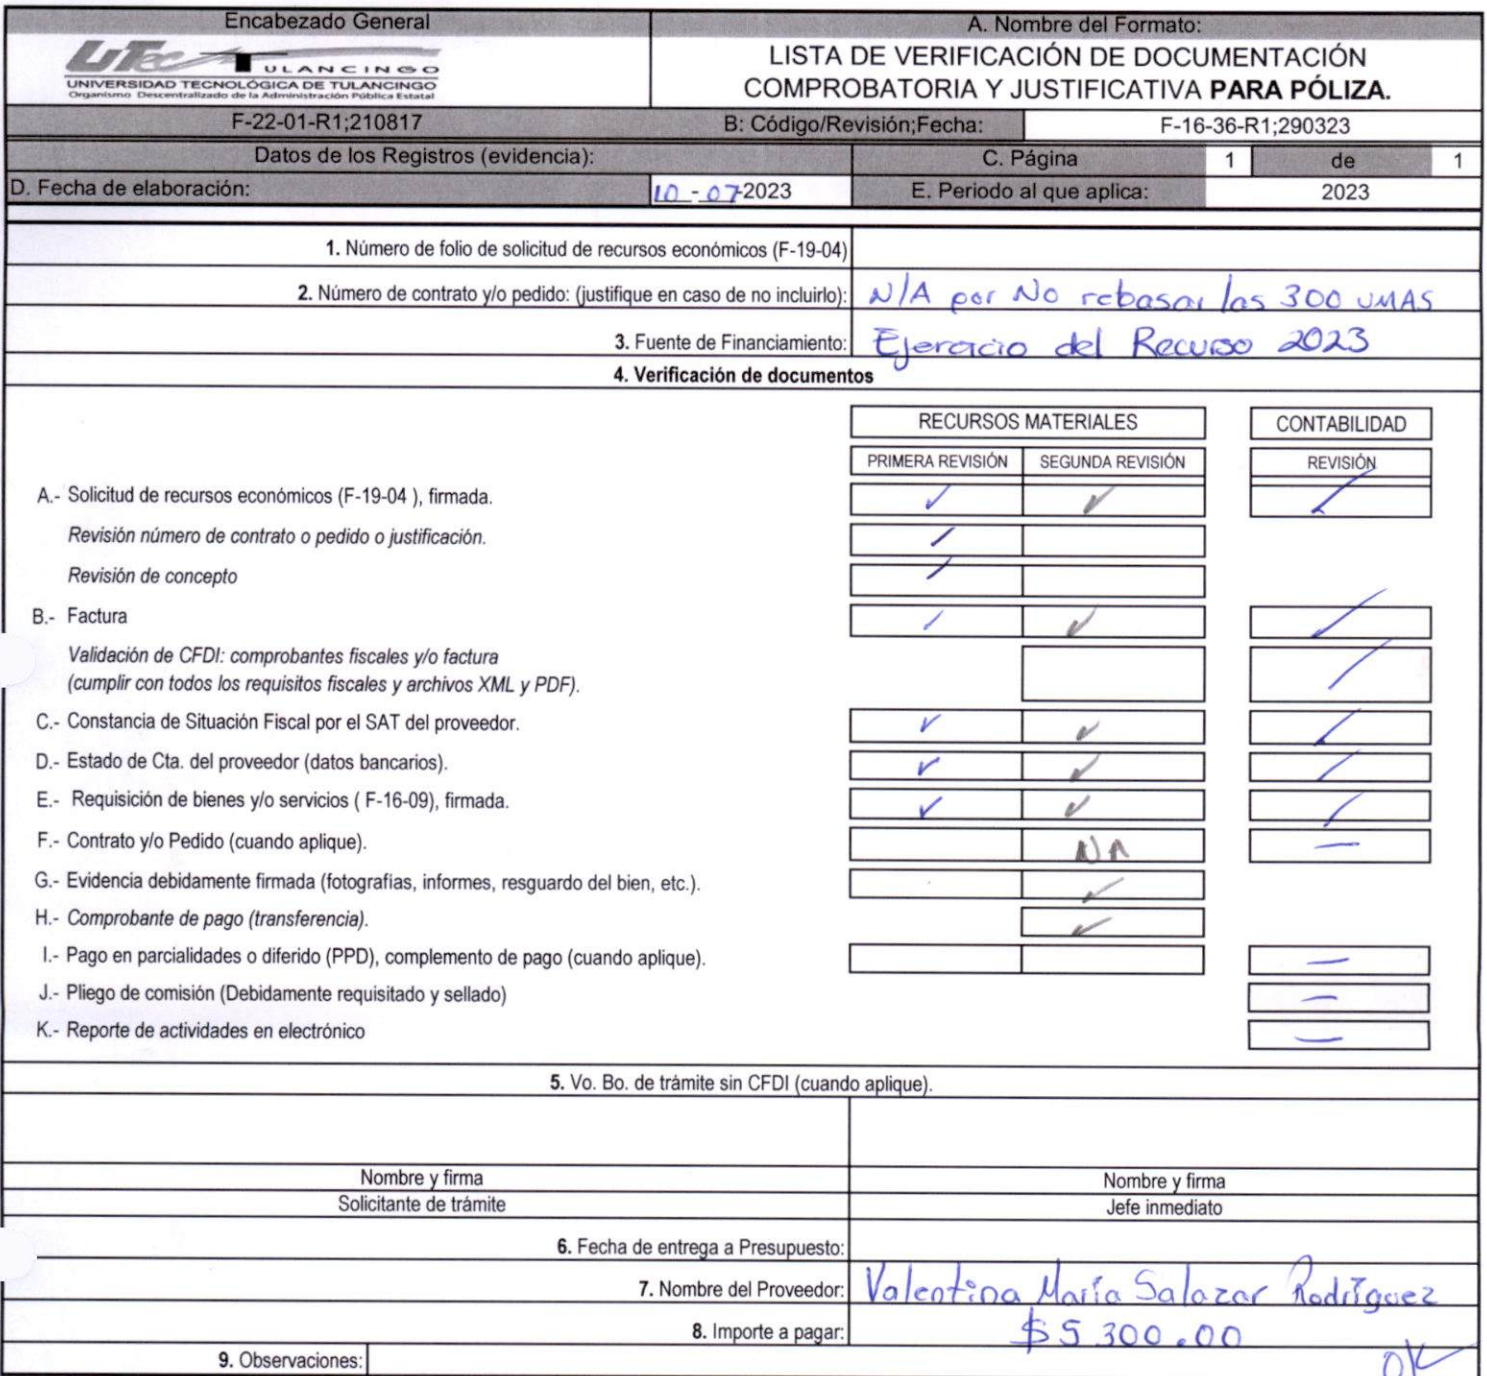 Encabezado General
A. Nombre del Formato:
UTec TULANCINGO
UNIVERSIDAD TECNOLÓGICA DE TULANCINGO
Organismo Descentralizado de la Administración Pública Estatal
LISTA DE VERIFICACIÓN DE DOCUMENTACIÓN
COMPROBATORIA Y JUSTIFICATIVA PARA PÓLIZA.
F-22-01-R1;210817 B: Código/Revisión;Fecha: F-16-36-R1;290323
Datos de los Registros (evidencia): C. Página 1 de 1
D. Fecha de elaboración: 10-07-2023 E. Periodo al que aplica: 2023
1. Número de folio de solicitud de recursos económicos (F-19-04)
2. Número de contrato y/o pedido: (justifique en caso de no incluirlo): N/A por No rebasar las 300 UMAS
3. Fuente de Financiamiento: Ejercicio del Recurso 2023
4. Verificación de documentos
RECURSOS MATERIALES CONTABILIDAD
PRIMERA REVISIÓN SEGUNDA REVISIÓN REVISIÓN
A.- Solicitud de recursos económicos (F-19-04 ), firmada. ✓ ✓ ✓
Revisión número de contrato o pedido o justificación.
Revisión de concepto
B.- Factura ✓ ✓ ✓
Validación de CFDI: comprobantes fiscales y/o factura
(cumplir con todos los requisitos fiscales y archivos XML y PDF).
C.- Constancia de Situación Fiscal por el SAT del proveedor. ✓ ✓ ✓
D.- Estado de Cta. del proveedor (datos bancarios). ✓ ✓
E.- Requisición de bienes y/o servicios ( F-16-09), firmada. ✓ ✓ ✓
F.- Contrato y/o Pedido (cuando aplique). NA —
G.- Evidencia debidamente firmada (fotografías, informes, resguardo del bien, etc.). ✓
H.- Comprobante de pago (transferencia). ✓
I.- Pago en parcialidades o diferido (PPD), complemento de pago (cuando aplique). —
J.- Pliego de comisión (Debidamente requisitado y sellado) —
K.- Reporte de actividades en electrónico —
5. Vo. Bo. de trámite sin CFDI (cuando aplique).
Nombre y firma Nombre y firma
Solicitante de trámite Jefe inmediato
6. Fecha de entrega a Presupuesto:
7. Nombre del Proveedor: Valentina María Salazar Rodríguez
8. Importe a pagar: $5 300.00
9. Observaciones: OK